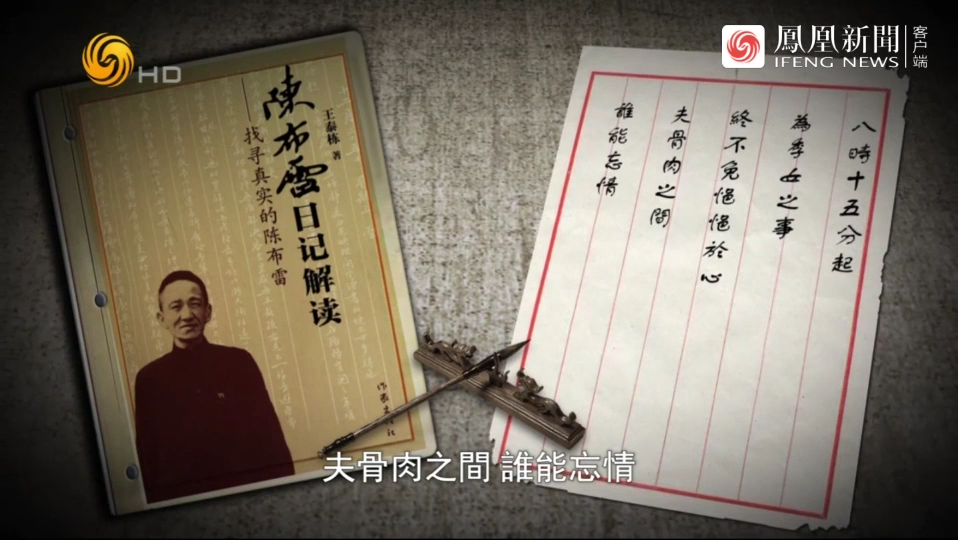 HD
鳳凰新聞
IFENG NEWS
客户端
陳布雷日记解读
——找寻真实的陈布雷
王泰栋 著
作家出版社
八時十五分起
為季女之事
終不免悒悒於心
夫骨肉之間
誰能忘情
夫骨肉之間 誰能忘情